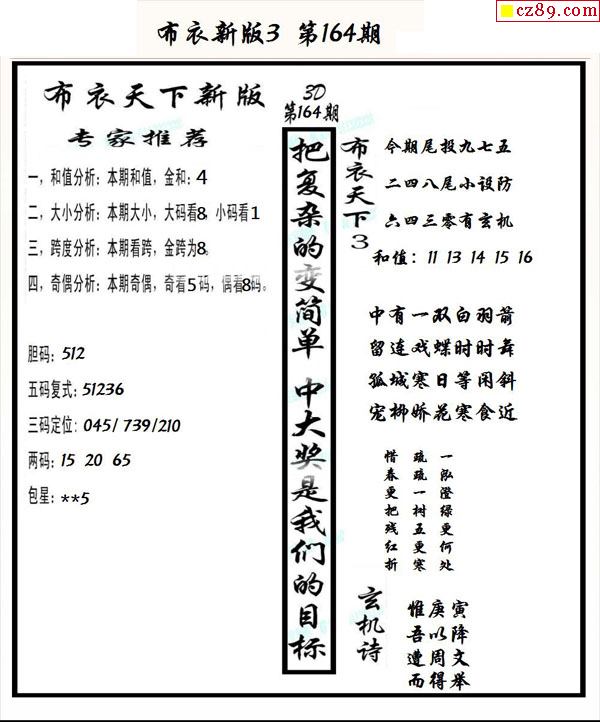 cz89.com
布衣新版3 第164期
布衣天下新版
专家推荐
一，和值分析：本期和值，金和：4
二，大小分析：本期大小，大码看8，小码看1
三，跨度分析：本期看跨，金跨为8。
四，奇偶分析：本期奇偶，奇看5码，偶看8码。
胆码：512
五码复式：51236
三码定位：045/739/210
两码：15 20 65
包星：**5
3D
第164期
把复杂的变简单 中大奖是我们的目标
布衣天下3
今期尾投九七五
二四八尾小设防
六四三零有玄机
和值：11 13 14 15 16
中有一双白羽箭
留连戏蝶时时舞
孤城寒日等闲斜
宠柳娇花寒食近
一泓澄绿更何处
疏疏一树五更寒
惜春更把残红折
玄机诗
惟庚寅
吾以降
遭周文
而得举